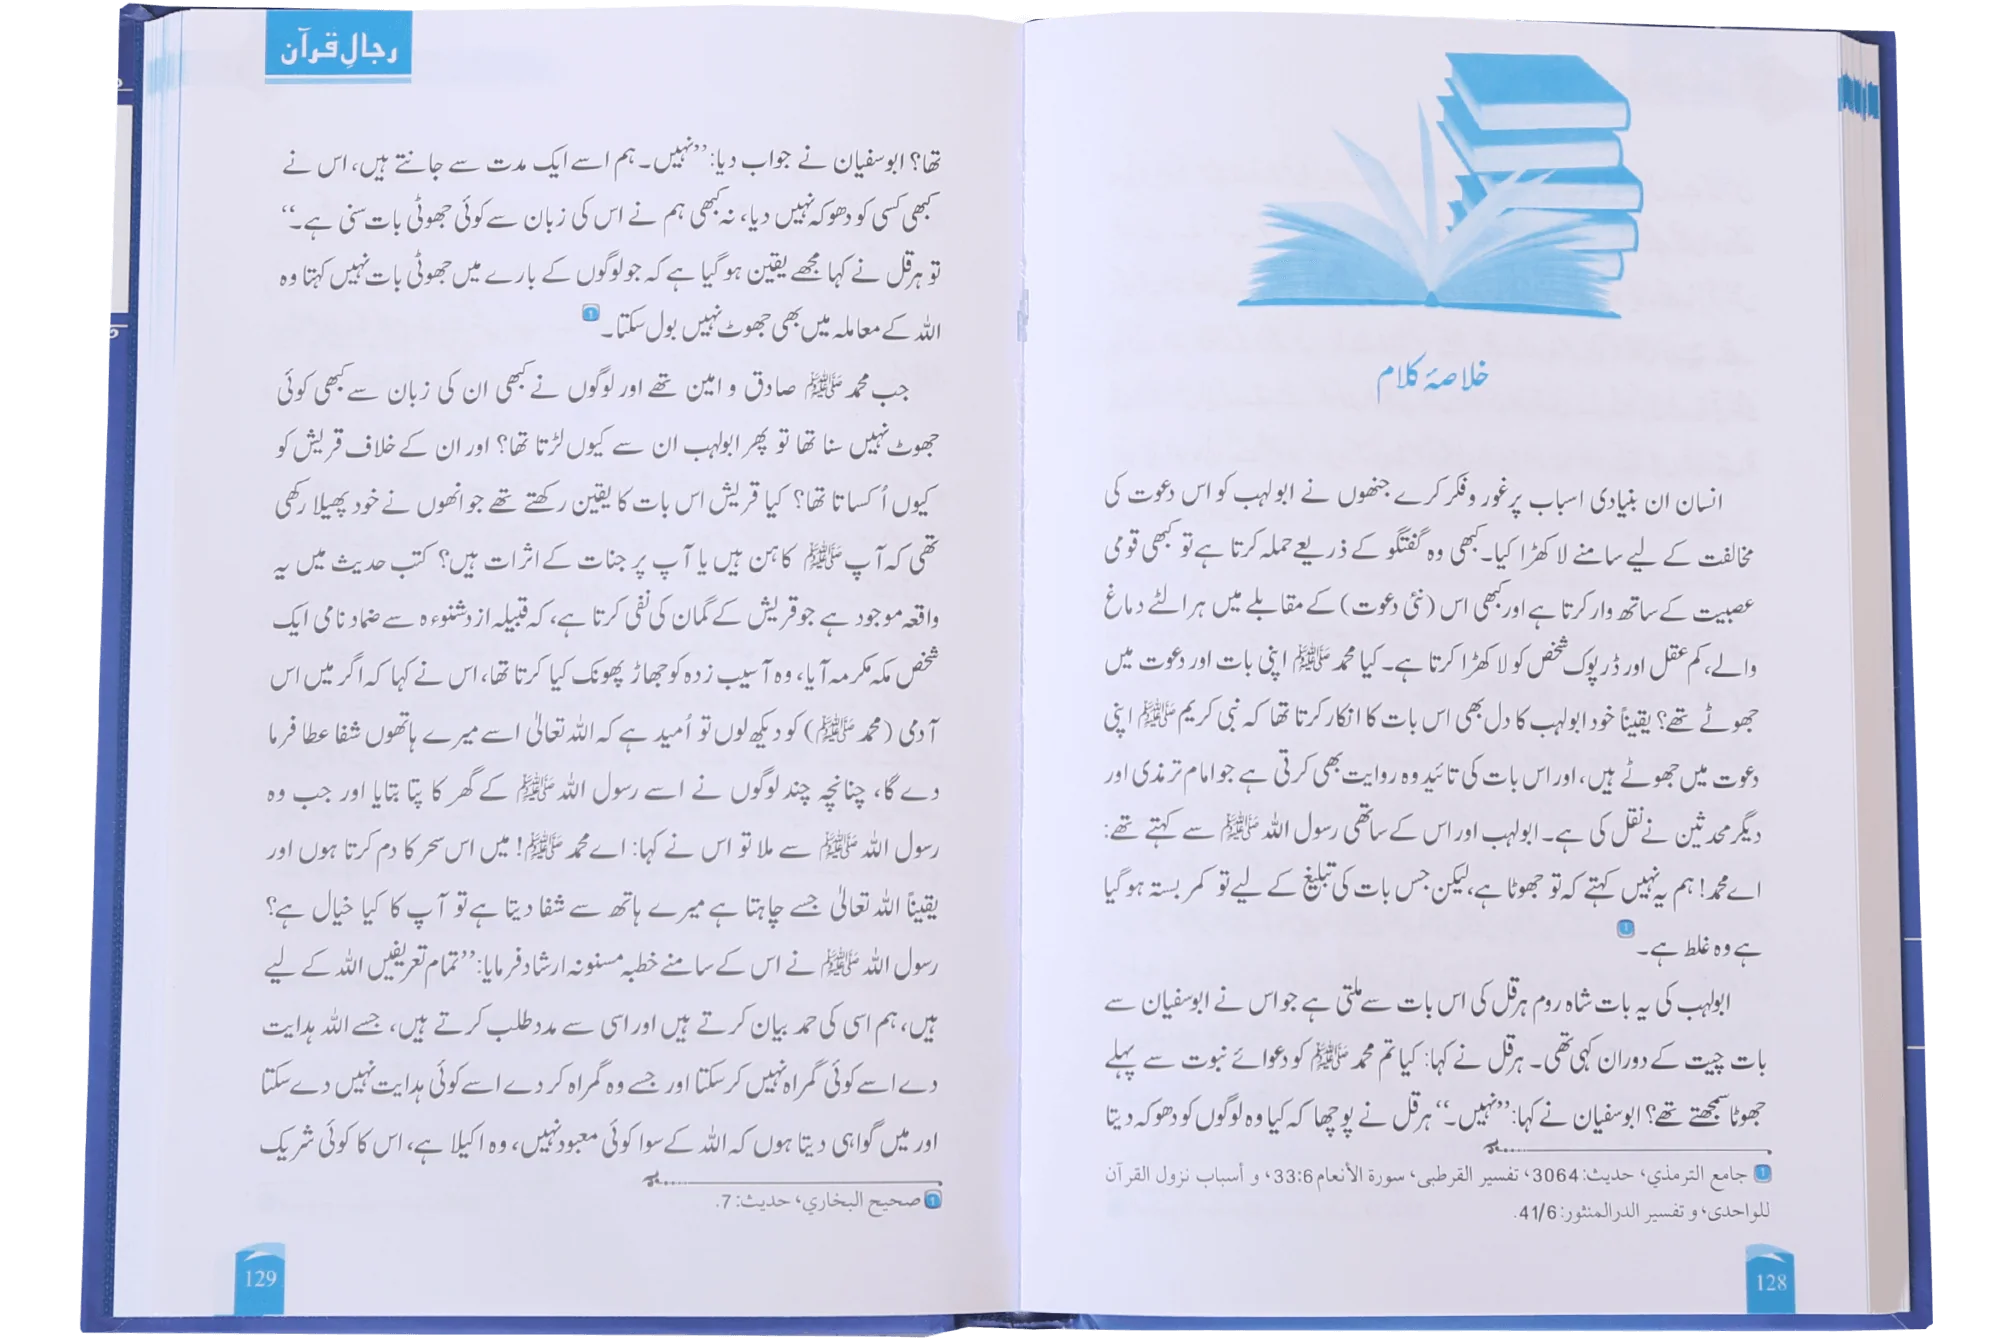 خلاصۂ کلام
انسان ان بنیادی اسباب پر غور و فکر کرے جنھوں نے ابولہب کو اس دعوت کی
مخالفت کے لیے سامنے لا کھڑا کیا۔ کبھی وہ گفتگو کے ذریعے حملہ کرتا ہے تو کبھی قومی
عصبیت کے ساتھ وار کرتا ہے اور کبھی اس (نئی دعوت) کے مقابلے میں ہر الٹے دماغ
والے، کم عقل اور ڈرپوک شخص کو لا کھڑا کرتا ہے۔ کیا محمد ﷺ اپنی بات اور دعوت میں
جھوٹے تھے؟ یقیناً خود ابولہب کا دل بھی اس بات کا انکار کرتا تھا کہ نبی کریم ﷺ اپنی
دعوت میں جھوٹے ہیں، اور اس بات کی تائید وہ روایت بھی کرتی ہے جو امام ترمذی اور
دیگر محدثین نے نقل کی ہے۔ ابولہب اور اس کے ساتھی رسول اللہ ﷺ سے کہتے تھے:
اے محمد! ہم یہ نہیں کہتے کہ تو جھوٹا ہے، لیکن جس بات کی تبلیغ کے لیے تو کمر بستہ ہو گیا
ہے وہ غلط ہے۔ 1
ابولہب کی یہ بات شاہ روم ہرقل کی اس بات سے ملتی ہے جو اس نے ابوسفیان سے
بات چیت کے دوران کہی تھی۔ ہرقل نے کہا: کیا تم محمد ﷺ کو دعوائے نبوت سے پہلے
جھوٹا سمجھتے تھے؟ ابوسفیان نے کہا: ’’نہیں۔‘‘ ہرقل نے پوچھا کہ کیا وہ لوگوں کو دھوکہ دیتا
1 جامع الترمذي، حدیث: 3064، تفسیر القرطبی، سورة الأنعام 33:6، و أسباب نزول القرآن
للواحدی، و تفسیر الدرالمنثور: 41/6.
128
رجالِ قرآن
تھا؟ ابوسفیان نے جواب دیا: ’’نہیں۔ ہم اسے ایک مدت سے جانتے ہیں، اس نے
کبھی کسی کو دھوکہ نہیں دیا، نہ کبھی ہم نے اس کی زبان سے کوئی جھوٹی بات سنی ہے۔‘‘
تو ہرقل نے کہا مجھے یقین ہو گیا ہے کہ جو لوگوں کے بارے میں جھوٹی بات نہیں کہتا وہ
اللہ کے معاملہ میں بھی جھوٹ نہیں بول سکتا۔ 1
جب محمد ﷺ صادق و امین تھے اور لوگوں نے کبھی ان کی زبان سے کبھی کوئی
جھوٹ نہیں سنا تھا تو پھر ابولہب ان سے کیوں لڑتا تھا؟ اور ان کے خلاف قریش کو
کیوں اُکساتا تھا؟ کیا قریش اس بات کا یقین رکھتے تھے جو انھوں نے خود پھیلا رکھی
تھی کہ آپ ﷺ کاہن ہیں یا آپ پر جنات کے اثرات ہیں؟ کتب حدیث میں یہ
واقعہ موجود ہے جو قریش کے گمان کی نفی کرتا ہے، کہ قبیلہ ازد شنوءہ سے ضماد نامی ایک
شخص مکہ مکرمہ آیا، وہ آسیب زدہ کو جھاڑ پھونک کیا کرتا تھا، اس نے کہا کہ اگر میں اس
آدمی (محمد ﷺ) کو دیکھ لوں تو اُمید ہے کہ اللہ تعالیٰ اسے میرے ہاتھوں شفا عطا فرما
دے گا، چنانچہ چند لوگوں نے اسے رسول اللہ ﷺ کے گھر کا پتا بتایا اور جب وہ
رسول اللہ ﷺ سے ملا تو اس نے کہا: اے محمد ﷺ! میں اس سحر کا دم کرتا ہوں اور
یقیناً اللہ تعالیٰ جسے چاہتا ہے میرے ہاتھ سے شفا دیتا ہے تو آپ کا کیا خیال ہے؟
رسول اللہ ﷺ نے اس کے سامنے خطبہ مسنونہ ارشاد فرمایا: ’’تمام تعریفیں اللہ کے لیے
ہیں، ہم اسی کی حمد بیان کرتے ہیں اور اسی سے مدد طلب کرتے ہیں، جسے اللہ ہدایت
دے اسے کوئی گمراہ نہیں کر سکتا اور جسے وہ گمراہ کر دے اسے کوئی ہدایت نہیں دے سکتا
اور میں گواہی دیتا ہوں کہ اللہ کے سوا کوئی معبود نہیں، وہ اکیلا ہے، اس کا کوئی شریک
1 صحیح البخاري، حدیث: 7.
129